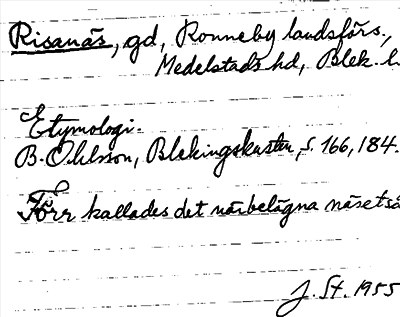 Risanäs, gd, Ronneby landsförs.,
Medelstads hd, Blek. l.
Etymologi.
B. Ohlsson, Blekingskusten, s. 166, 184.
Förr kallades det närbelägna näset så
J. St. 1955